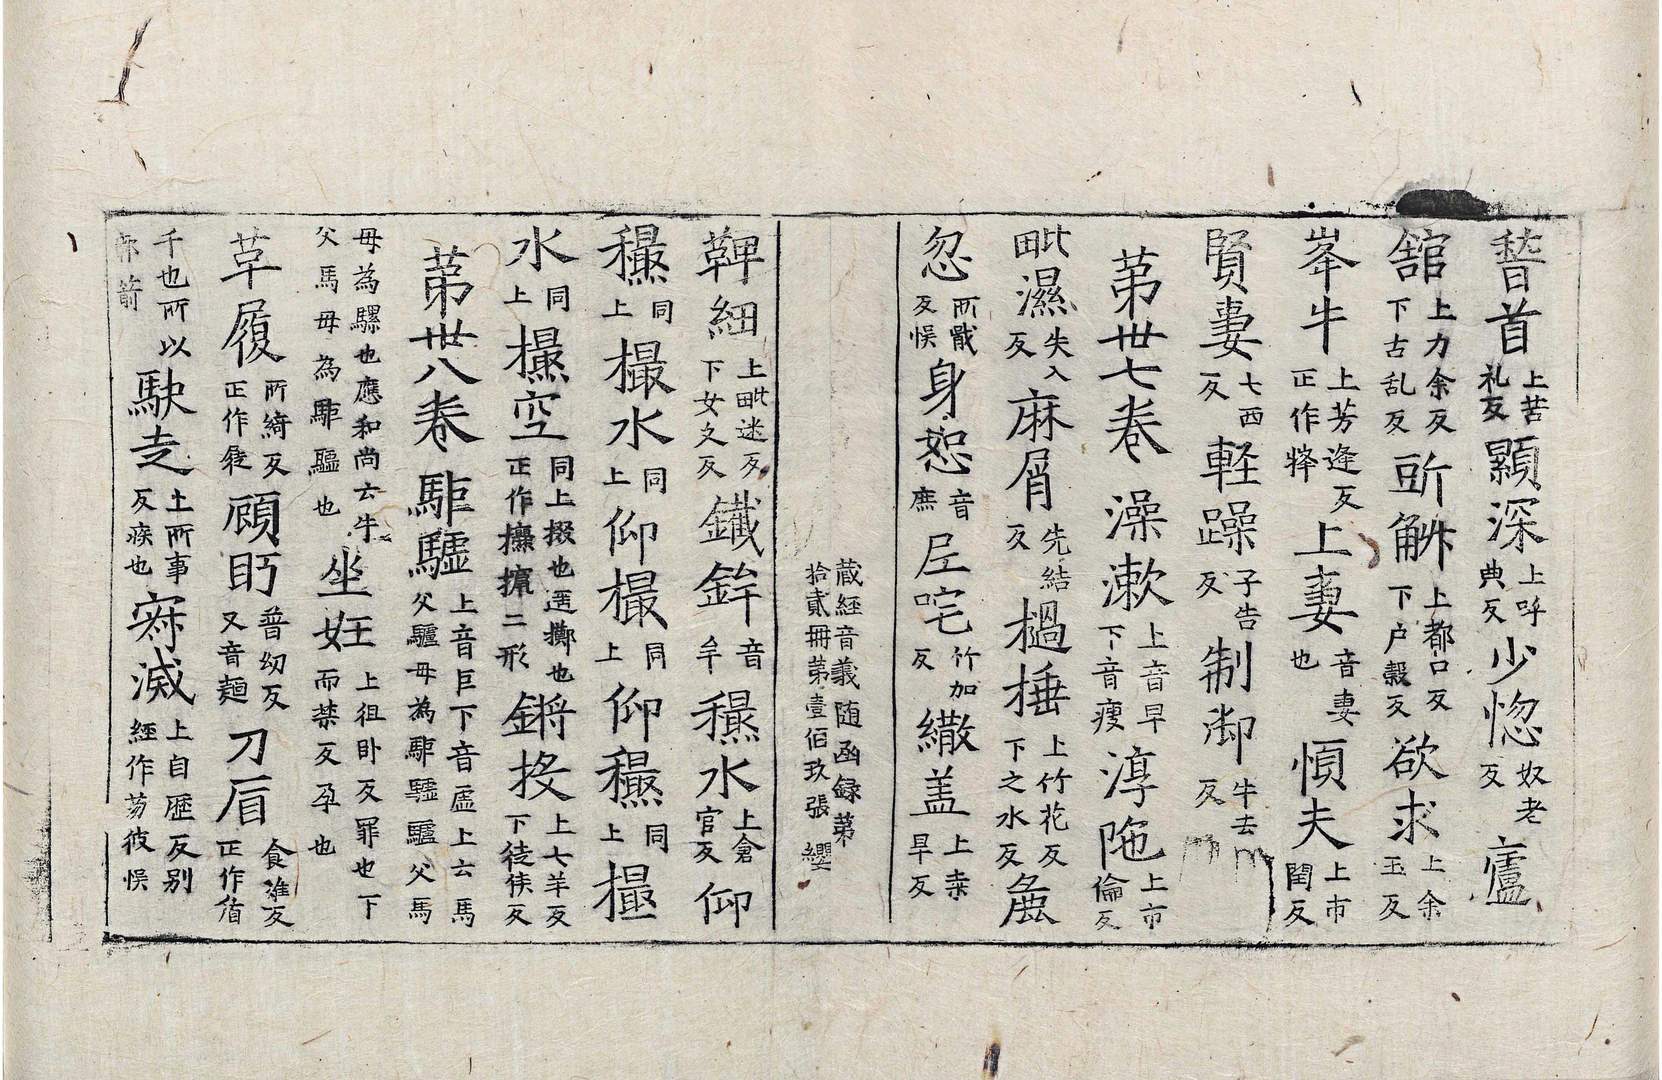 䭬首上苦礼反顯深上呼典反少惚奴老反廬
舘上力余反下古乱反㪷斛上都口反下户縠反欲求上余玉反
峯牛上芳逢反正作犎上妻音妻也愪夫上市閏反
賢妻七西反軽躁子告反制御牛去反
苐卅七卷澡漱上音早下音瘦淳陁上市倫反
毗濕失入反麻屑先結反檛捶上竹花反下之水反麁
忽所戬反悮身恕音庶𡰱咤竹加反繖盖上桒旱反
蔵經音義随函録第
拾貳冊第壹伯玖張 纓
鞞紐上毗迷反下女久反鑯鉾音牟穳水上倉官反仰
穳同上撮水同上仰撮同上仰穳同上撮
水同上攥空同上掇也遥擲也正作攥攛二形鏘㧞上七羊反下徒侠反
苐卅八卷駏驉上音巨下音虛上云馬父驢母為駏驉驢父馬
母為騾也應和尚云牛父馬母為駏驉也坐妊上徂卧反罪也下而禁反孕也
草履所綺反正作屣頋眄普幻反又音麺刀盾食准反正作㡒
千也所以𣃁箭駛走士所事反疾也寂滅上自歴反别經作苆彼悮